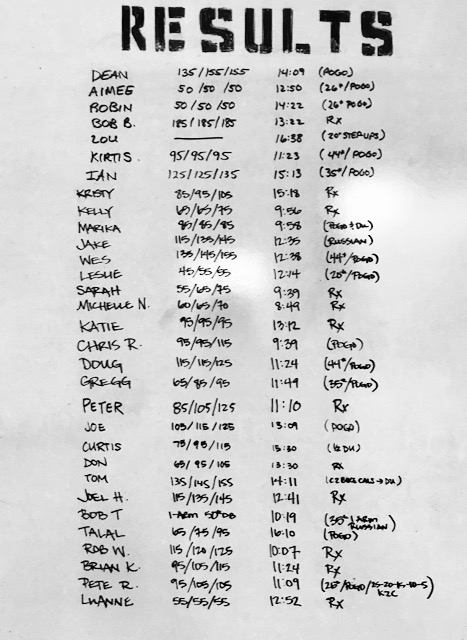 RESULTS
DEAN 135/155/155 14:09 (POGO)
AIMEE 50/50/50 12:50 (26#/POGO)
ROBIN 50/50/50 14:22 (26# POGO)
BOB B. 185/185/185 13:22 Rx
LOU 16:38 (20" STEPUPS)
KIRTIS. 95/95/95 11:23 (44#/POGO)
IAN 125/125/135 15:13 (35#/POGO)
KRISTY 85/95/105 15:18 Rx
KELLY 65/65/75 9:56 Rx
MARIKA 85/85/85 9:58 (POGO + DU)
JAKE 115/135/145 12:35 (RUSSIAN)
WES 135/145/155 12:38 (44#/POGO)
LESLIE 45/55/55 12:14 (20#/POGO)
SARAH 55/65/75 9:39 Rx
MICHELLE N. 60/65/70 8:49 Rx
KATIE 95/95/95 13:12 Rx
CHRIS R. 95/95/115 9:39 (POGO)
DOUG 115/115/125 11:24 (44#/POGO)
GREGG 65/85/95 11:49 (35#/POGO)
PETER 85/105/125 11:10 Rx
JOE 105/115/125 13:09 (POGO)
CURTIS 75/95/115 15:30 (1/2 DU)
DON 65/95/105 13:30 Rx
TOM 135/145/155 14:11 (C2 BIKE CALS → DU)
JOEL H. 115/135/145 12:41 Rx
BOB T 1-ARM 50# DB 10:19 (35# 1 ARM RUSSIAN)
TALAL 65/75/95 16:10 (POGO)
ROB W. 115/120/125 10:07 Rx
BRIAN K. 95/105/115 11:24 Rx
PETE R. 95/105/105 11:09 (26#/POGO/25-20-15-10-5 K2C
LUANNE 55/55/55 12:52 Rx